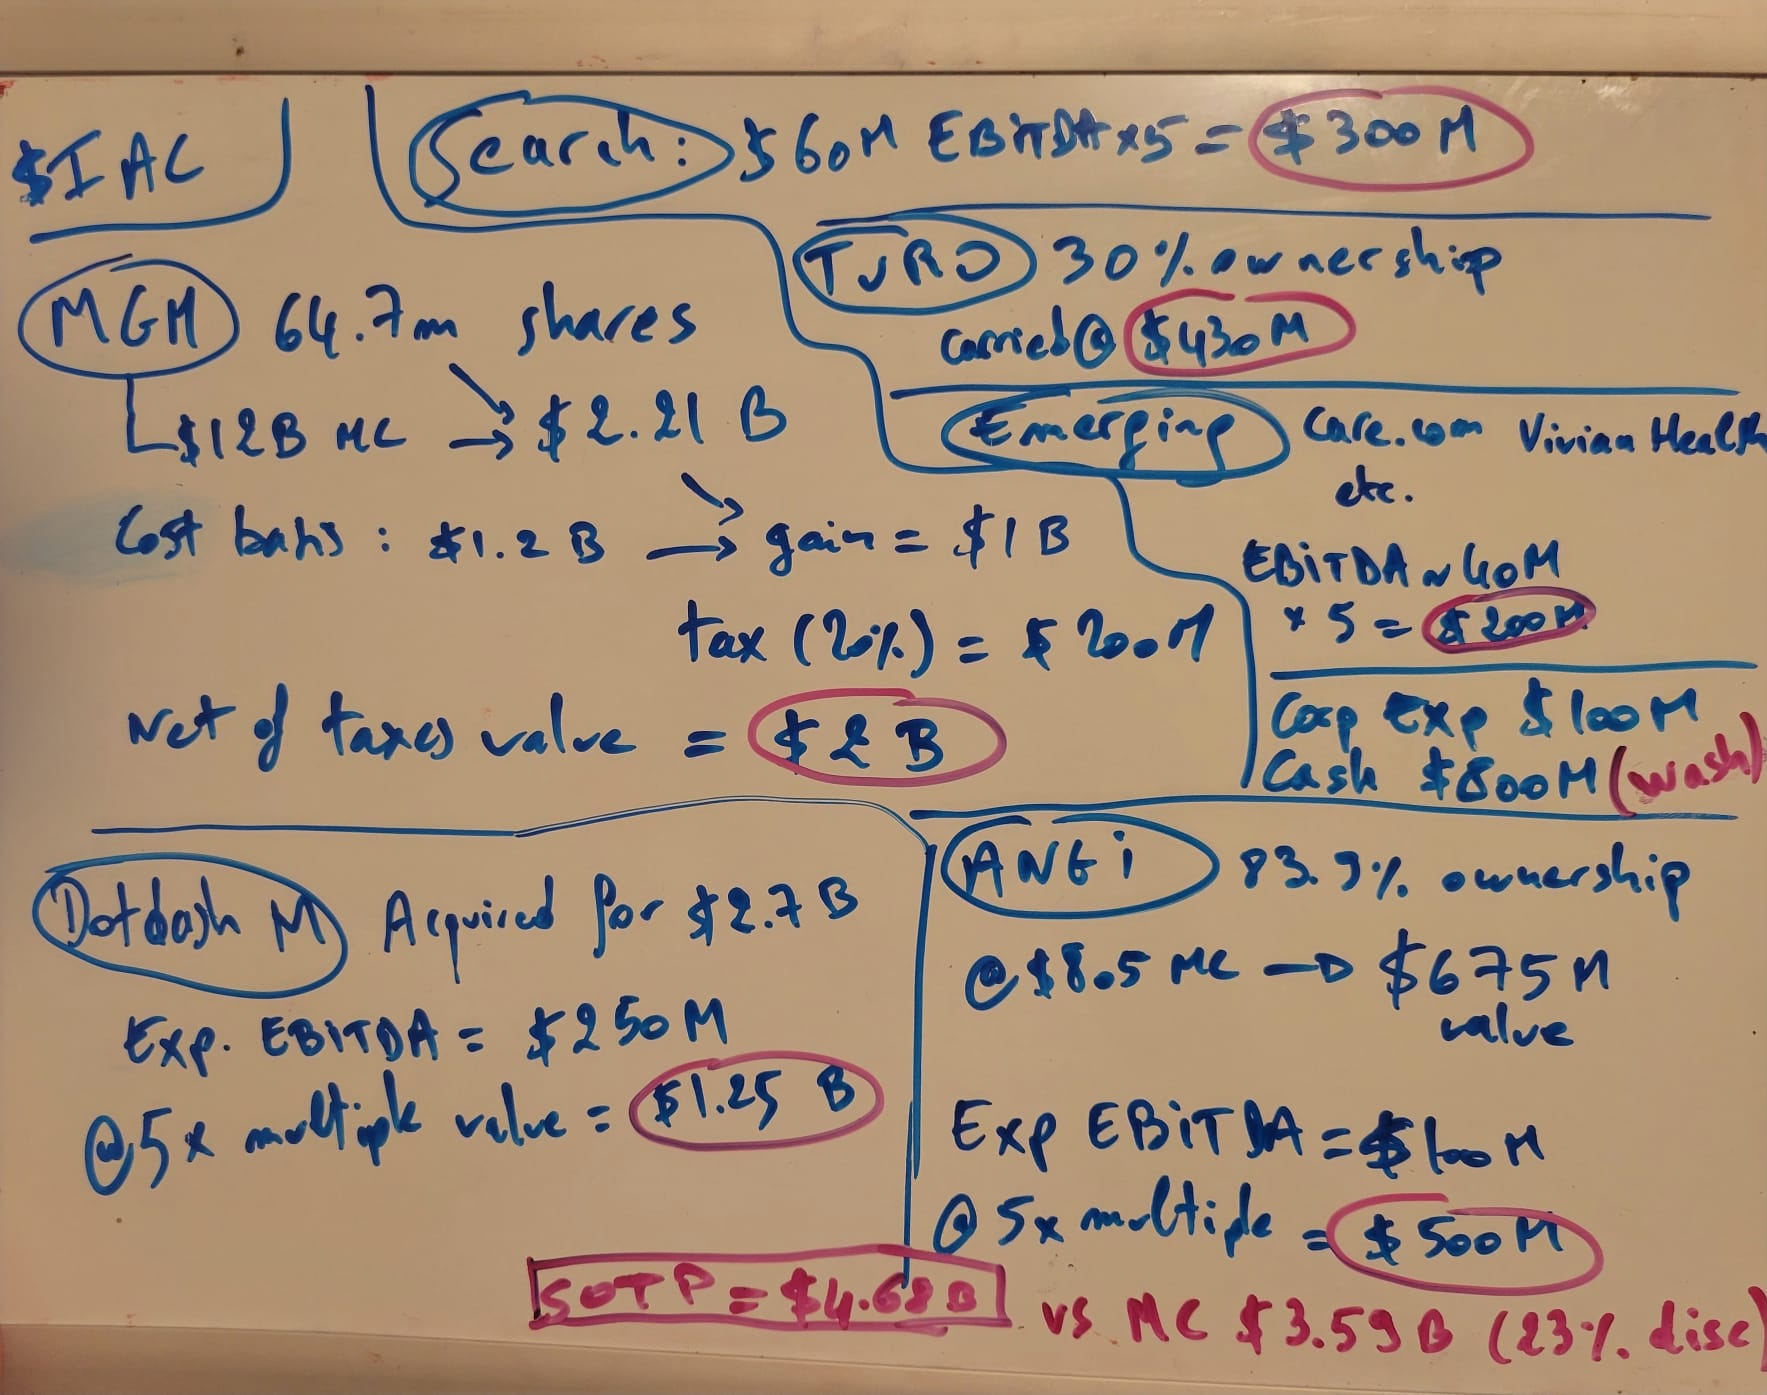 $IAC
Search: $60M EBITDA x5 = $300M
MGM 64.7m shares
$12B MC → $2.21 B
Cost basis : $1.2 B → gain = $1 B
tax (20%) = $ 200M
Net of taxes value = $2 B
TURO 30% ownership
carried @ $430M
Emerging Care.com Vivian Health
etc.
EBITDA ~ 40M
x 5 = $200M
Corp Exp $100M
Cash $800M (wash)
Dotdash M Acquired for $2.7 B
Exp. EBITDA = $250M
@ 5x multiple value = $1.25 B
ANGi 83.9% ownership
@ $8.5 MC → $675M
value
Exp EBITDA = $100M
@ 5x multiple = $500M
SOTP = $4.68B vs MC $3.59B (23% disc)